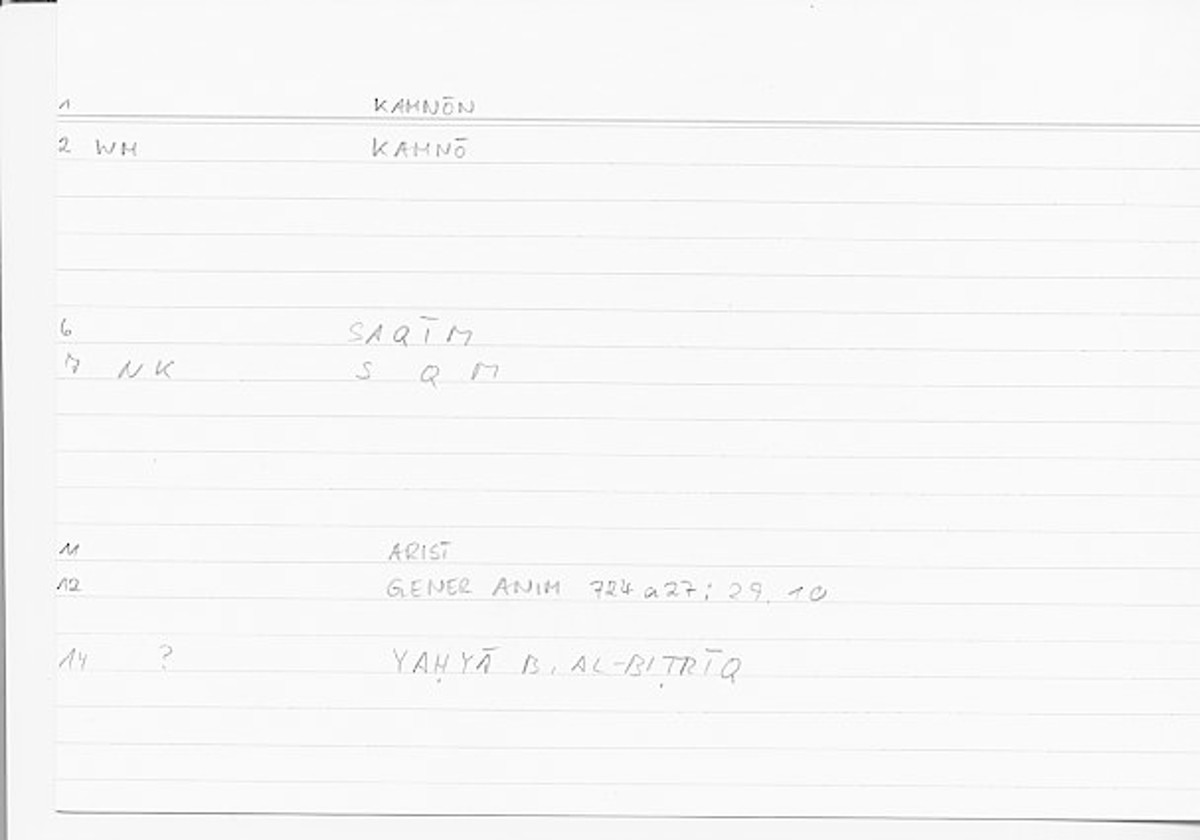 1 KAMNŌN
2 WM KAMNŌ
6 SAQĪM
7 NK S Q M
11 ARIST
12 GENER ANIM 724a27; 29,10
14 ? YAḤYĀ B. AL-BIṬRĪQ